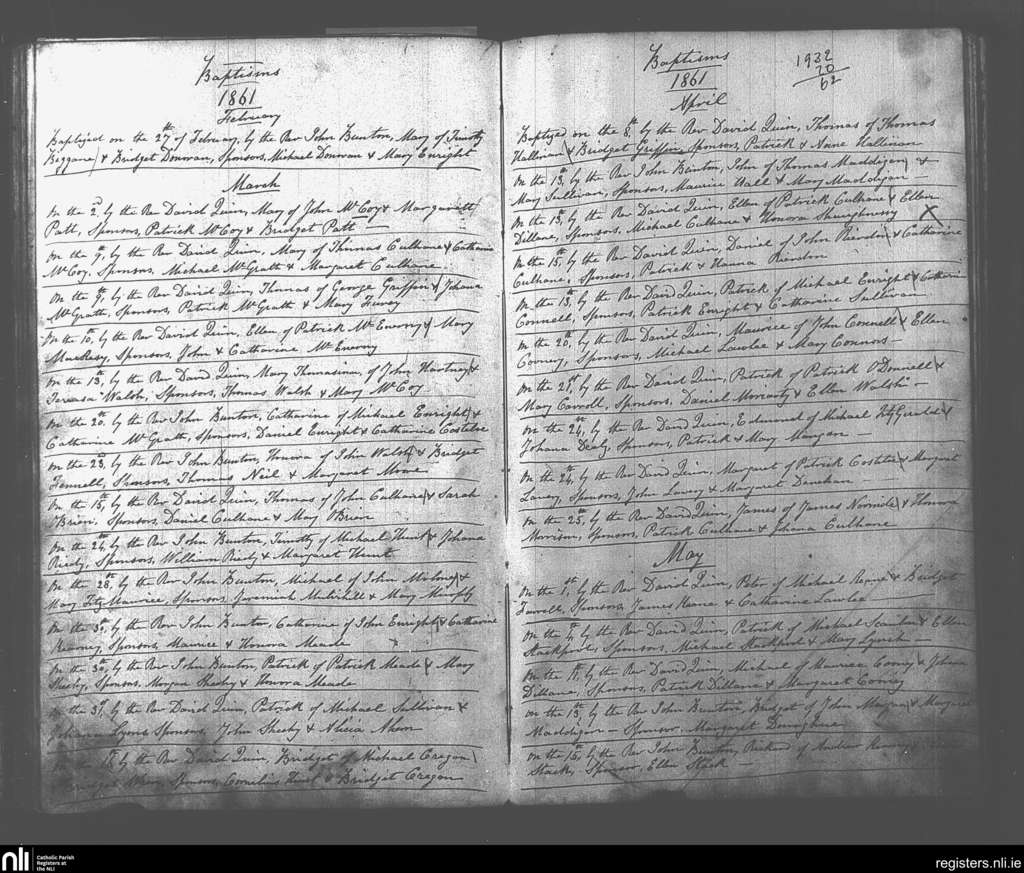 Baptisms
1861
February
Baptized on the 27th of February, by the Rev John Bunton, Mary of Timothy
Beggane & Bridget Donovan, Sponsors, Michael Donovan & Mary Enright
March
On the 2nd, by the Rev David Quin, Mary of John McCoy & Margarett
Patt, Sponsors, Patrick McCoy & Bridget Patt —
On the 9th, by the Rev David Quin, Mary of Thomas Culhane & Catharine
McCoy, Sponsors, Michael McGrath & Margaret Culhane
On the 9th, by the Rev David Quin, Thomas of George Griffin & Johana
McGrath, Sponsors, Patrick McGrath & Mary
On the 10th, by the Rev David Quin, Ellen of Patrick McEnerny & Mary
Sponsors, John & Catharine McEnerny
On the 13th, by the Rev David Quin, Mary Thomasina, of John Hartney &
Teresa Walsh, Sponsors, Thomas Walsh & Mary McCoy
On the 20th, by the Rev John Bunton, Catharine of Michael Enright &
Catharine McGrath, Sponsors, Daniel Enright & Catharine Costeloe
On the 23, by the Rev John Bunton, Honora of John Walsh & Bridget
Fennell, Sponsors, Thomas Neil & Margaret Moore
On the 15th, by the Rev David Quin, Thomas of John Culhane & Sarah
OBrien, Sponsors, Daniel Culhane & Mary OBrien
On the 26th, by the Rev John Bunton, Timothy of Michael Hunt & Johana
Riedy, Sponsors, William Riedy & Margaret Hunt
On the 28th, by the Rev John Bunton, Michael of John &
Mary FitzMaurice, Sponsors, Jeremiah & Mary Murphy
On the 30th, by the Rev John Bunton, Catharine of John Enright & Catharine
Kearney, Sponsors, Maurice & Honora Meade
On the 30th, by the Rev John Bunton, Patrick of Patrick Meade & Mary
Sheehy, Sponsors, Morgan Sheehy & Honora Meade
On the 31st, by the Rev David Quin, Patrick of Michael Sullivan &
Johana Lyons Sponsors, John Sheehy & Alicia
by the Rev David Quin, Bridget of Michael Creagan
Bridget Sponsors, Cornelius Hunt & Bridget Creagan
Baptisms
1861
April
1932
70
62
Baptized on the 8th, by the Rev David Quin, Thomas of Thomas
Hallinan & Bridget Griffin, Sponsors, Patrick & Anne Hallinan
On the 13th, by the Rev John Bunton, John of Thomas Maddigan &
May Sullivan, Sponsors, Maurice Wall & Mary Maddigan —
On the 13th, by the Rev David Quin, Ellen of Patrick Culhane & Ellen
Dillane, Sponsors, Michael Culhane & Honora Shaughnessy X
On the 15th, by the Rev David Quin, Daniel of John Riordan & Catharine
Culhane, Sponsors, Patrick & Hanna Riordan
On the 13, by the Rev David Quin, Patrick of Michael Enright & Catharine
Connell, Sponsors, Patrick Enright & Catharine Sullivan
On the 20th, by the Rev David Quin, Maurice of John Connell & Ellen
Sponsors, Michael Lawlee & Mary Connors —
On the 21st, by the Rev David Quin, Patrick of Patrick O'Donnell &
Mary Carroll, Sponsors, Daniel Moriarty & Ellen Walsh —
On the 24, by the Rev David Quin, Edmund of Michael FitzGerald &
Johana Sponsors, Patrick & Mary Mangan —
On the 24th, by the Rev David Quin, Margaret of Patrick Costeloe & Margaret
Sponsors, John & Margaret Denehan —
On the 25th, by the Rev David Quin, James of James Normole & Honora
Morrison, Sponsors, Patrick Culhane & Johana Culhane
May
On the 1st, by the Rev David Quin, Peter of Michael Keane & Bridget
Sponsors, James Keane & Catharine Lawlee
On the 4th, by the Rev David Quin, Patrick of Michael Scanlan & Ellen
Stackpoole, Sponsors, Michael Stackpoole & Mary Lynch —
On the 11th, by the Rev David Quin, Michael of Maurice Cooney & Johana
Dillane, Sponsors, Patrick Dillane & Margaret Cooney
On the 13th, by the Rev John Bunton, Bridget of John & Margaret
Maddigan — Sponsor, Margaret
On the 15th, by the Rev John Bunton, Richard of Andrew
Stack, Sponsor, Ellen Stack —
nli
Catholic Parish
Registers at
the NLI
registers.nli.ie